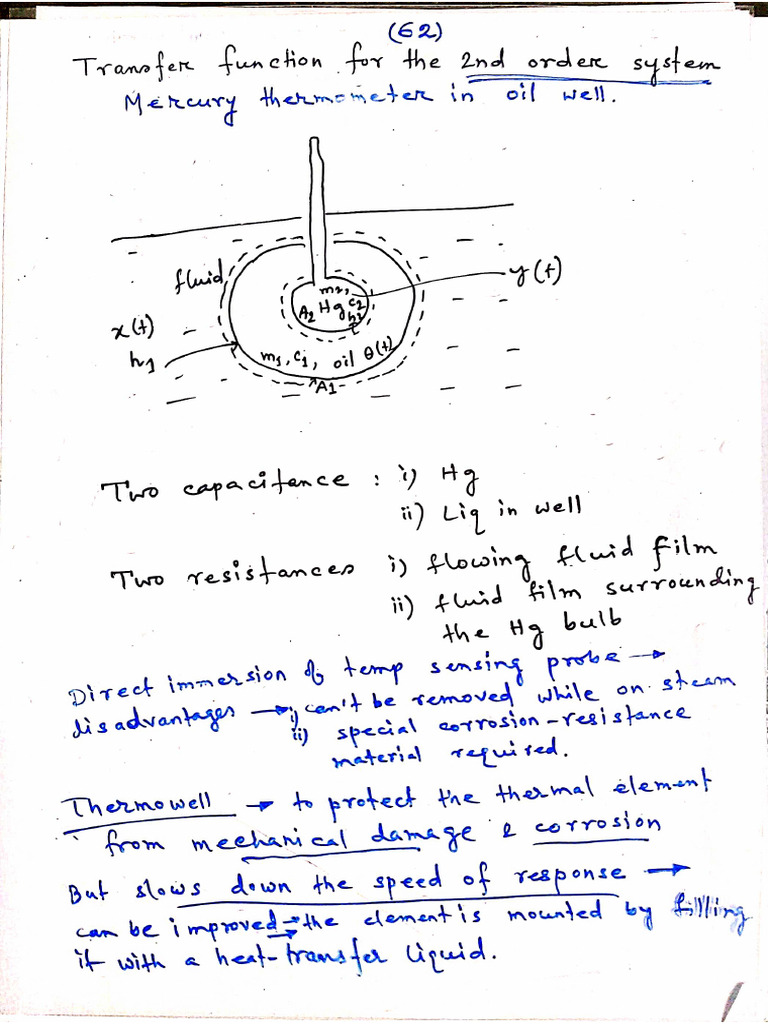 (62)
Transfer function for the 2nd order system
Mercury thermometer in oil well.
fluid
m2,
A2 Hg c2
h2
y(t)
x(t)
h1
m1, c1, oil θ(t)
A1
Two capacitance : i) Hg
ii) Liq in well
Two resistances i) flowing fluid film
ii) fluid film surrounding
the Hg bulb
Direct immersion of temp sensing probe →
disadvantages → i) can't be removed while on steam
ii) special corrosion-resistance
material required.
Thermowell → to protect the thermal element
from mechanical damage & corrosion
But slows down the speed of response →
can be improved → the element is mounted by filling
it with a heat-transfer liquid.